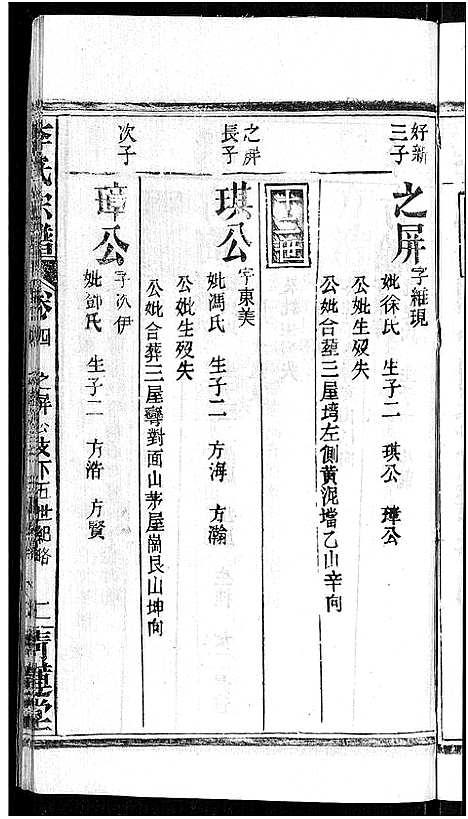 好新三子
之屏 字維現
妣徐氏 生子二 琪公 璋公
公妣生歿失
公妣合葬三屋塆左側黃泥壋乙山辛向
十二世
之屏長子
琪公 字東美
妣馮氏 生子二 方海 方瀚
公妣生歿失
公妣合葬三屋彎對面山茅屋崗艮山坤向
次子
璋公 字次伊
妣鄧氏 生子二 方浩 方賢
李氏宗譜
卷四
之屏公支下五世紀略
二
青蓮堂